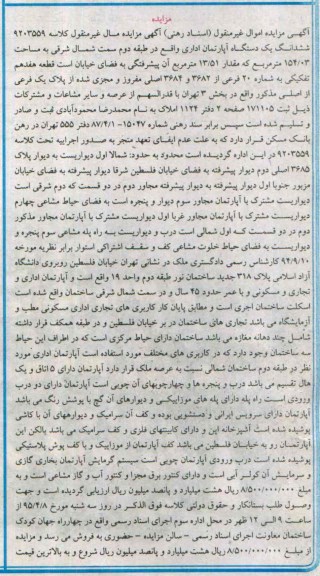 مزایده
آگهی مزایده اموال غیرمنقول (اسناد رهنی) آگهی مزایده مال غیرمنقول کلاسه ۹۲۰۳۵۵۹
ششدانگ یک دستگاه آپارتمان اداری واقع در طبقه دوم سمت شمال شرقی به مساحت
۱۵۴/۰۳ مترمربع که مقدار ۱۳/۵۱ مترمربع آن پیشرفتگی به فضای خیابان است قطعه هفدهم
تفکیکی به شماره ۲۰ فرعی از ۳۶۸۲ و ۳۶۸۴ اصلی مفروز و مجزی شده از پلاک یک فرعی
از اصلی مذکور واقع در بخش ۳ تهران با قدرالسهم از عرصه و سایر مشاعات و مشترکات
ذیل ثبت ۱۷۱۱۰۵ صفحه ۲ دفتر ۱۱۲۴ املاک به نام محمدرضا محمودآبادی ثبت و صادر
و تسلیم شده است سپس برابر سند رهنی شماره ۱۵۰۴۷-۸۷/۴/۱ دفتر ۵۵۵ تهران در رهن
بانک مسکن قرار دارد که به علت عدم ایفای تعهد منجر به صدور اجراییه تحت کلاسه
۹۲۰۳۵۵۹ در این اداره گردیده است محدود به حدود: شمالا اول دیواریست به دیوار پلاک
۳۶۸۵ اصلی دوم دیوار پیشرفته به فضای خیابان فلسطین شرقا دیوار پیشرفته به فضای خیابان
مزبور جنوبا اول دیوار پیشرفته به دیوار پیشرفته مجاور دوم در دو قسمت که دوم شرقی است
دیواریست مشترک با آپارتمان مجاور سوم دیوار و پنجره است به فضای حیاط مشاعی چهارم
دیواریست مشترک با آپارتمان مجاور غربا اول دیواریست مشترک با آپارتمان مجاور مذکور
دوم در دو قسمت که اول شمالی است درب و دیواریست به راه پله مشاعی سوم پنجره و
دیواریست به فضای حیاط خلوت مشاعی کف و سقف اشتراکی استوار برابر نظریه مورخه
۹۴/۹/۱۰ کارشناس رسمی دادگستری ملک در نشانی تهران خیابان فلسطین روبروی دانشگاه
آزاد اسلامی پلاک ۳۱۸ جدید ساختمان نور طبقه دوم واحد ۱۹ واقع است و آپارتمان اداری و
تجاری و مسکونی و با عمر حدود ۴۵ سال و در سمت شمال شرقی ساختمان واقع شده است
اسکلت ساختمان آجری است و مطابق پایان کار کاربری های تجاری اداری مسکونی مطب و
آزمایشگاه می باشد تجاری های ساختمان در بر خیابان فلسطین و در طبقه همکف قرار داشته
شامل چند دهانه مغازه می باشد ساختمان دارای حیاط مرکزی است که در اطراف این حیاط
سه ساختمان وجود دارد که در کاربری های مختلف مورد استفاده است آپارتمان اداری مورد
نظر در طبقه دوم ساختمان شمالی نسبت به عرصه ملک قرار دارد آپارتمان دارای ۵ اتاق و یک
هال تقسیم می باشد درب و پنجره ها و چهارچوبهای آن چوبی است آپارتمان دارای دو درب
ورودی است راه پله دارای پله های موزاییکی و دیوارهای آن گچ با پوشش رنگ می باشد
آپارتمان دارای سرویس ایرانی و دستشویی بوده و کف آن سرامیک و دیوارهای آن با کاشی
پوشیده شده است آشپزخانه اپن و دارای کابینتهای فلزی و کف سرامیک می باشد بالکن این
آپارتمان رو به خیابان فلسطین می باشد کف آپارتمان از موزاییک و با کف پوش پلاستیکی
پوشیده شده است درب ورودی آپارتمان چوبی است سیستم گرمایش آپارتمان بخاری گازی
و سرمایش آن کولر آبی است و دارای کنتور برق مجزا و کنتور آب و گاز مشاعی است و به
مبلغ ۸/۵۰۰/۰۰۰/۰۰۰ ریال هشت میلیارد و پانصد میلیون ریال ارزیابی گردیده است و جهت
وصول طلب بستانکار و حقوق دولتی کلاسه فوق الذکر در روز سه شنبه مورخ ۹۵/۴/۸ از
ساعت ۹ الی ۱۲ ظهر در محل اداره سوم اجرای اسناد رسمی واقع در چهارراه جهان کودک
ساختمان معاونت اجرای اسناد رسمی - سالن مزایده - حضوری به فروش می رسد و مزایده
از مبلغ ۸/۵۰۰/۰۰۰/۰۰۰ ریال هشت میلیارد و پانصد میلیون ریال شروع و به بالاترین قیمت